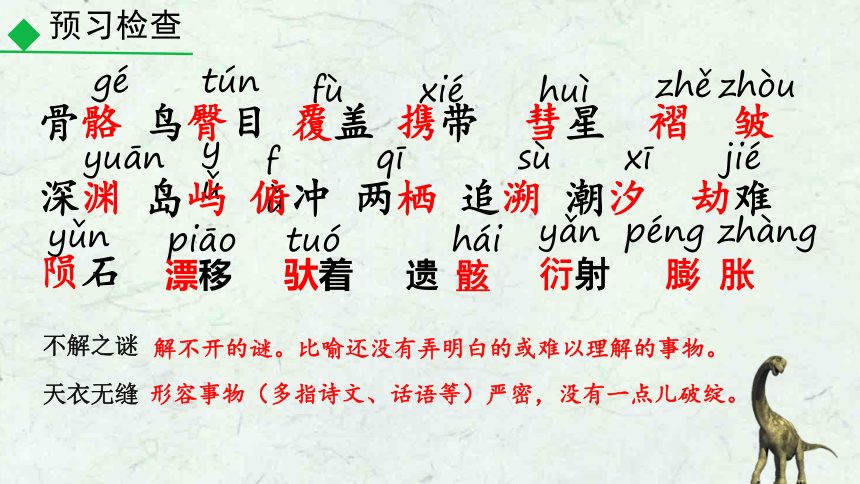 预习检查
gé tún fù xié huì zhě zhòu
骨骼 鸟臀目 覆盖 携带 彗星 褶 皱
yuān yǔ fǔ qī sù xī jié
深渊 岛屿 俯冲 两栖 追溯 潮汐 劫难
yǔn piāo tuó hái yǎn péng zhàng
陨石 漂移 驮着 遗骸 衍射 膨 胀
不解之谜 解不开的谜。比喻还没有弄明白的或难以理解的事物。
天衣无缝 形容事物（多指诗文、话语等）严密，没有一点儿破绽。